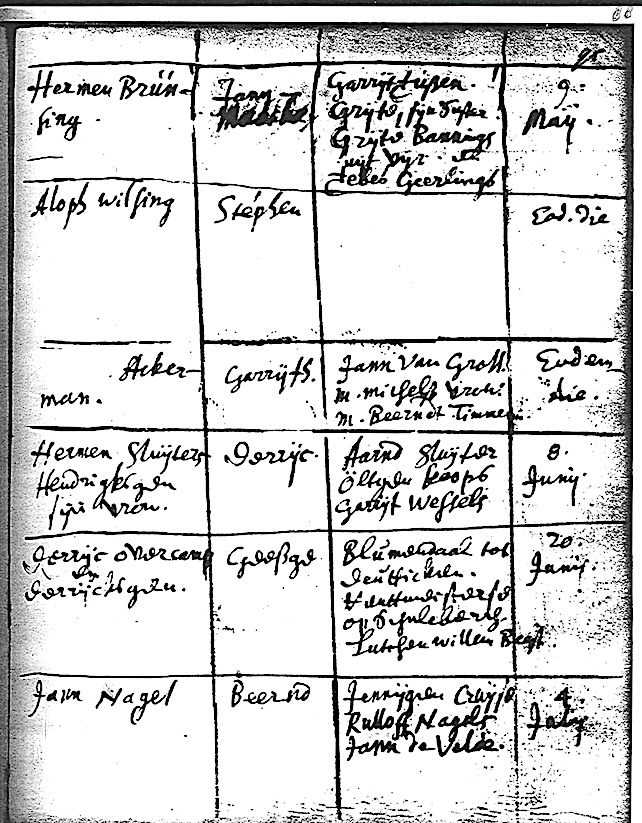 Hermen Brün-
sing.
Jann
Garrijt
Grijte, sijn suster
Grijte Bannings
Jebes Geerlings
9.
Maij.
Aloph Wilsing
Stephen
Eod. die
Acker-
man.
Garrijtt.
Jann Van Groll.
m. michels vrou.
m. Beerndt Timmer
Eodem
die.
Hermen Sluijters
Hendrigksgen
sijn vrou.
Derrijc.
Aarnd Sluijter
Öltgen Koops
Garrijt Wessels
8.
Junij.
Derrijc Overcamp
Derrijcksgen.
Geeßge
Blumendaal tot
Deuttichem.
op Schulebörch
Lutchen willem
20.
Junij.
Jann Nagel
Beernd
Jennijgen
Rulloff Nagels
Jann de Velde.
4.
July